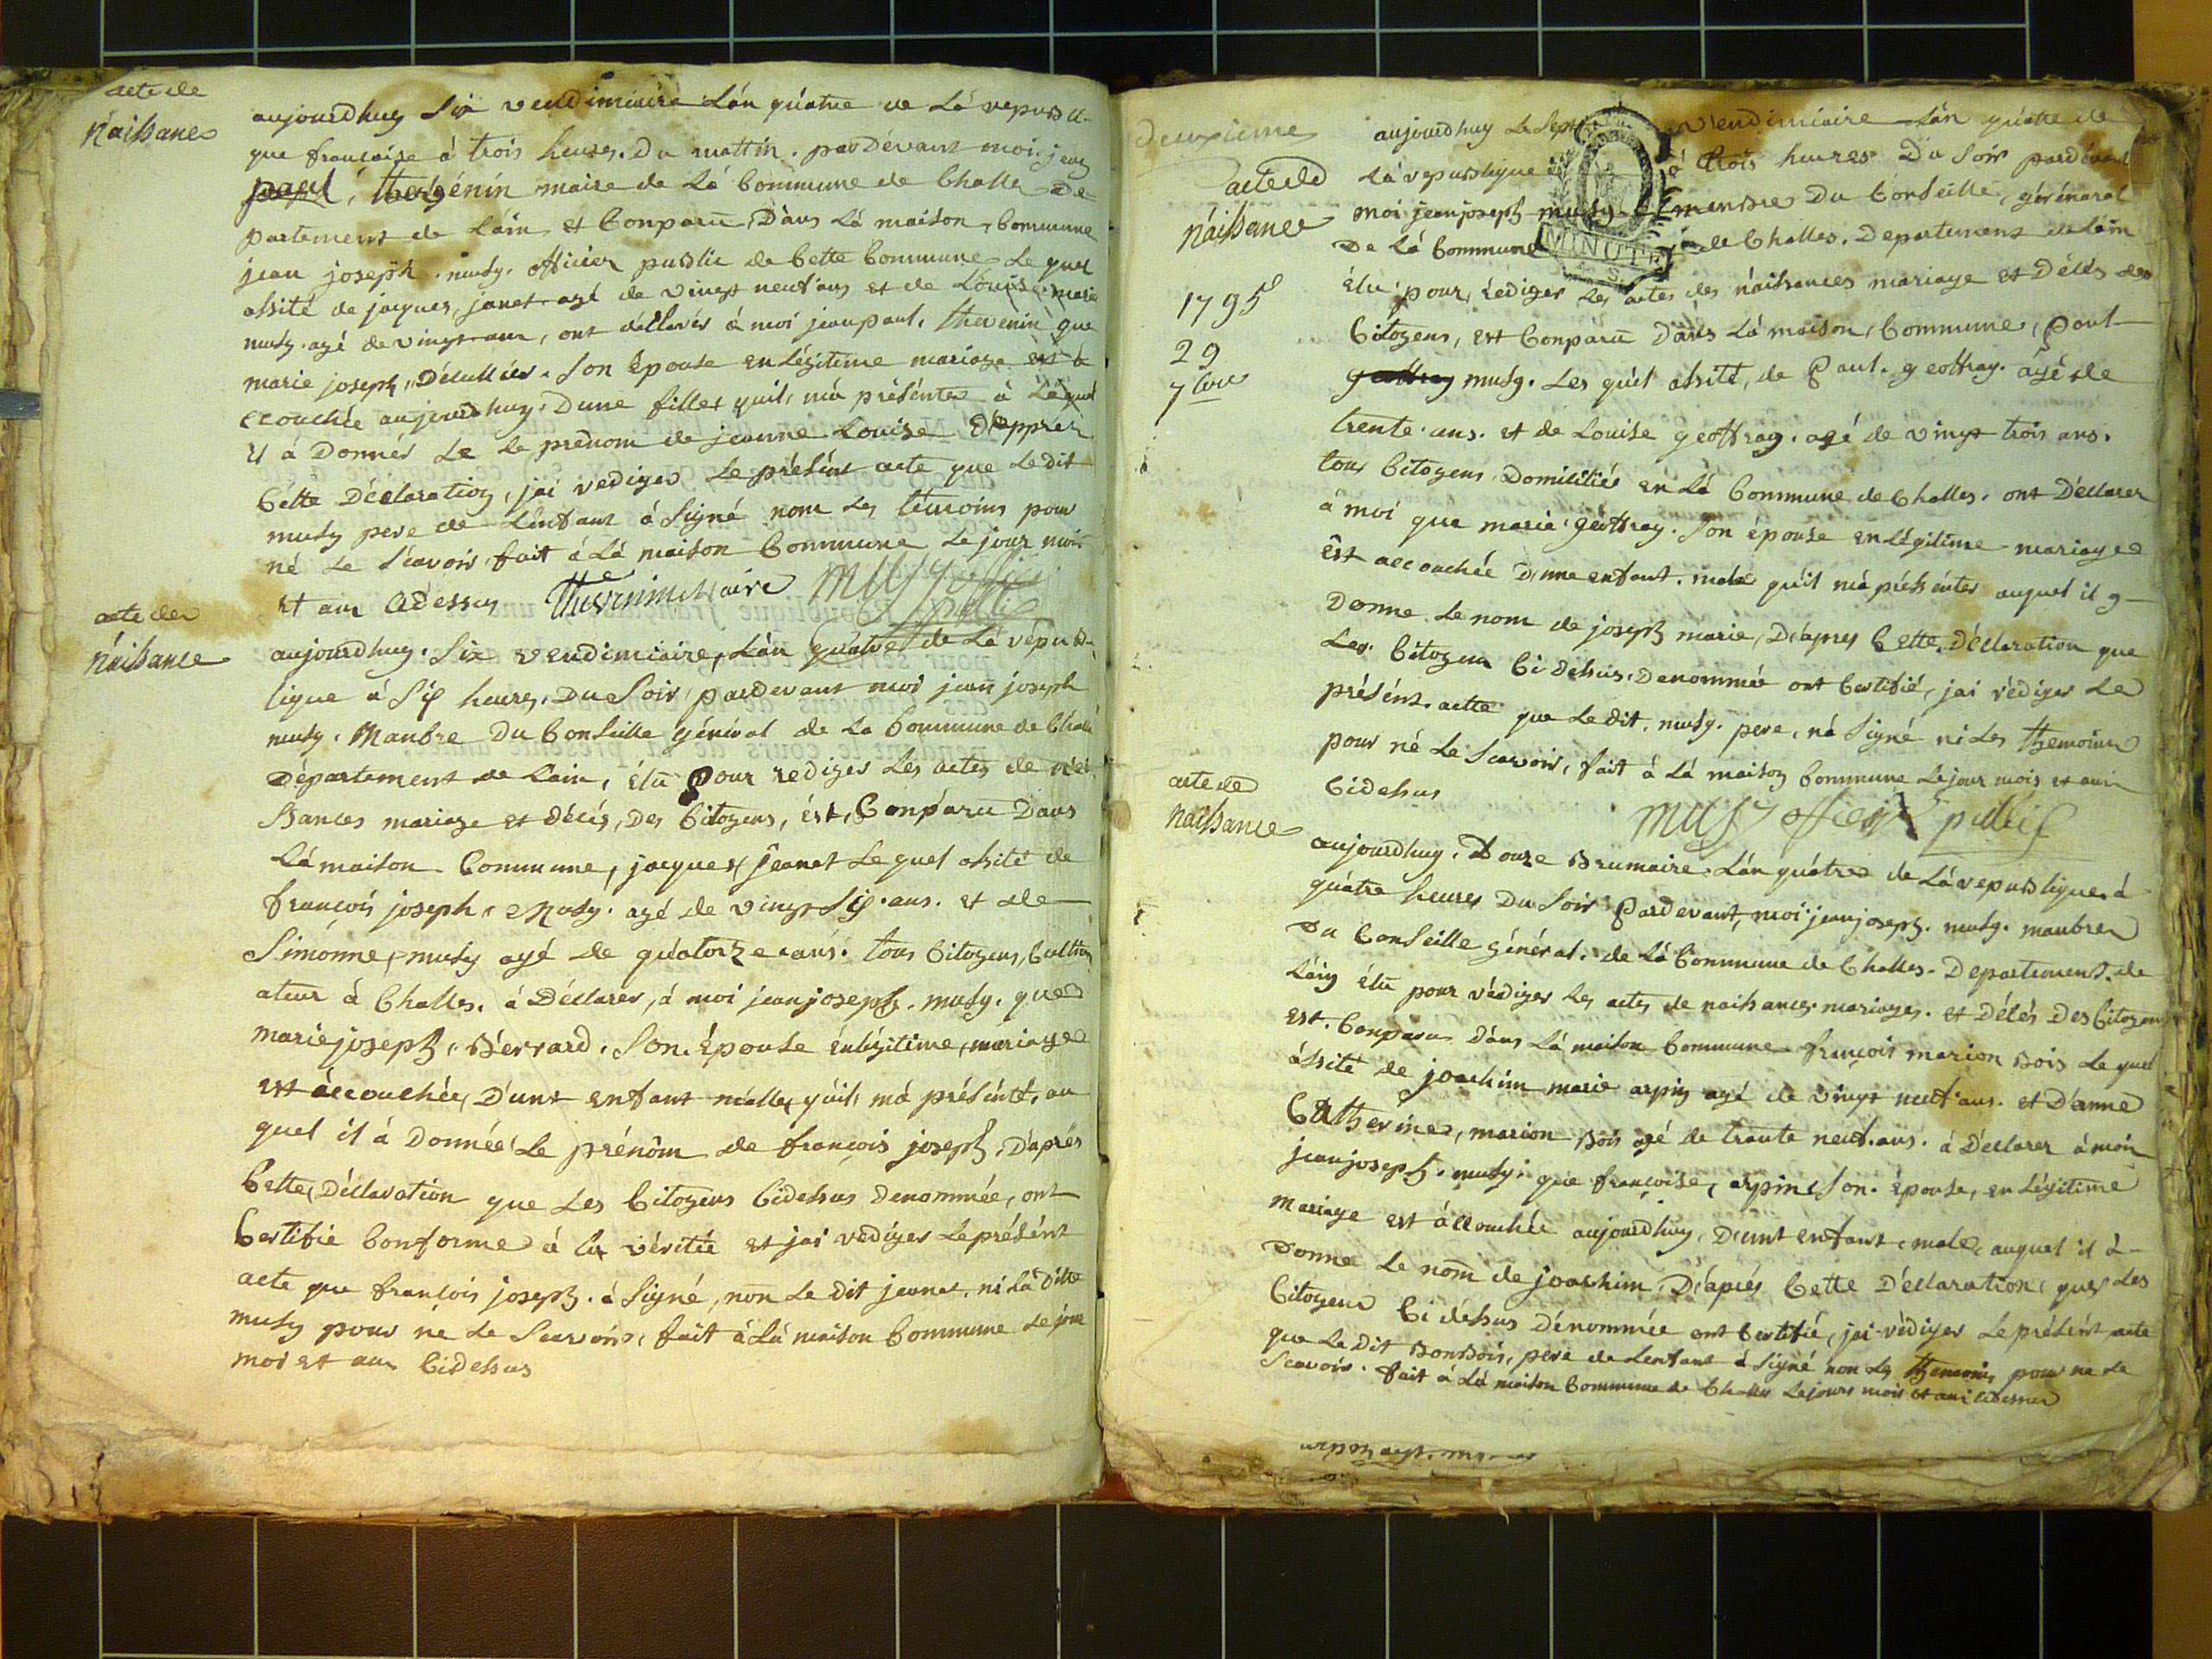 acte de
náissance
aujourdhuy Six vendimiaire Lán quátre de Lá repub li-
que francaise á trois heures. Du mattin. par Dévant moi. jean
paul, thevénin maire de Lá Commune de Challes De
partement de Lain et Conparu Dáns Lá maison, Commune
jean joseph. musy. officier public de Cette Commune Le quel
assité de jacques, janet agé de vingt neuf ans et de Louise marie
musy. agé de vingt ans, ont déclarér á moi jean paul. thevenin que
marie joseph, Décullier. Son épouse en Légitime mariage est á
ccouchée aujourdhuy. Dune filles quil, má présénter á Láquel
il á Donnér Le Le prénom de jeanne Louise D'apprés
Cétte Déclaration, jai rediger Le présént acte que Ledit
musy pere de Lénfant á Signé nom Les témoins pour
né Le Scavoir fait á Lá maison Commune Le jour mois
et an Cidessus Thevenin Maire musy offici
public
acte de
náissance
aujourdhuy. Six vendimiaire, Lán quatre de Lá répub-
lique á Six heures. Du Soir pardevant moi jean joseph
musy. Manbre Du Conseille général de La Commune de Challe
Département de Lain, élu Pour rediger Les actes de néi
ssances mariage et décés, Des Citoyens, ést, Conparu Dans
Lá maison Commune, jacques Jeanet Le quel assité de
françois joseph. Musy. agé de vingt Six. ans. et de
Simonne, musy agé de quátorze ans. tous Citoyens, Cultiv
ateur á Challes. á Déclarer, á moi jean joseph. musy. que
marie joseph, Bérrard. Son. Épouse én Légitime, mariage
est áccouchée, D'unt enfant málle, quil, má présénté, au
quel il á Donnée Le prénom de françois joseph, D'aprés
Cette, Déclaration que Les Citoyens Cidessus denommée, ont
Certifie Conforme á La véritée et jai rédiger Le présént
acte que françois joseph. á Signé, non Le dit jeanet, ni Lá Ditte
musy pour né Le Scavoir, fait á Lá maison Commune Le jour
moi et an Cidessus
deuxieme
acte de
náissance
1795
29
7bre
aujourdhuy Le Sept vendimiaire Lán quátre de
Lá republique á trois heures Du Soir pardévant
moi jean joseph musy menbre Du Conseille, général
De Lá Commune de Challes. Departement de Lain
MINUTE
élu pour, rédiger Les actes des náissances mariage et Décés des
Citoyens, est Conparu Dans Lá maison, Commune, paul
geoffray musy. Les quél assité, de Paul. geoffray. agé de
trente ans. et de Louise geoffray. agé de vingt trois ans.
tous Citoyens Domicilié en Lá Commune de Challes. ont Déclarer
á moi que marie géoffray. Son épouse en Légitime mariage
ést accouchée D'unne enfant. male quil má présénter auquel il y
Donne Le nom de joseph marie, D'apres Cette Déclaration que
Les Citoyen Ci dessus. Denommée ont Certifié, jai rédiger Le
présént. actte que Ledit. musy. pere, ná Signé ni Les themoins
pour né Le Scavoir, fait á Lá maison Commune Le jour mois et an
Cidessus
musy officier public
acte de
naissance
aujourdhuy. Douze Brumaire. Lán quátre de Lá republique á
quátre heures Du Soir Pardevant, moi jean joseph. musy. manbre
Du Conseille général. de Lá Commune de Challes. Departement. de
Láin élu pour rédiger Les actes de naissances. mariages. et Décés Des Citoyens
est. Conparu Dáns Lá maison Commune françois marion Bois Le quel
ássité de joachim marie arpin agé de vingt neuf ans. et D'anne
Catherine, marion Bois agé de trante neuf. ans. á Déclarer á moi
jean joseph. musy. que françoise, arpin Son. épouse, en Légitime
Mariage est áccouchée aujourdhuy, D'unt enfant, male, auquel il á
Donne Le nom de joachim. D'apres Cette Déclaration que Les
Citoyens Ci dessus Dénommée ont Certifié, jai rédiger Le présént acte
que Le dit Bonbois, pere de Lenfant á Signé non Les themoins pour ne Le
Scavoir. fait á Lá maison Commune de Challes Le jours mois et an cidessus